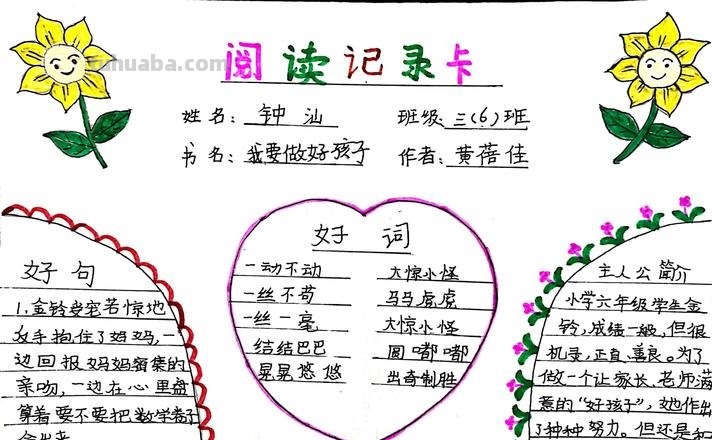 阅读记录卡
姓名：钟汕 班级：三(6)班
书名：我要做好孩子 作者：黄蓓佳
好句
1.金铃受宠若惊地
反手抱住了妈妈,一
边回报妈妈密集的
亲吻,一边在心里盘
算着要不要把数学卷子
拿出来
好词
一动不动 大惊小怪
一丝不苟 马马虎虎
一丝一毫 大惊小怪
结结巴巴 圆嘟嘟
晃晃悠悠 出奇制胜
主人公简介
小学六年级学生金
铃,成绩一般,但很
机灵,正直、善良。为了
做一个让家长、老师满
意的“好孩子”,她作出
了种种努力。但还是和